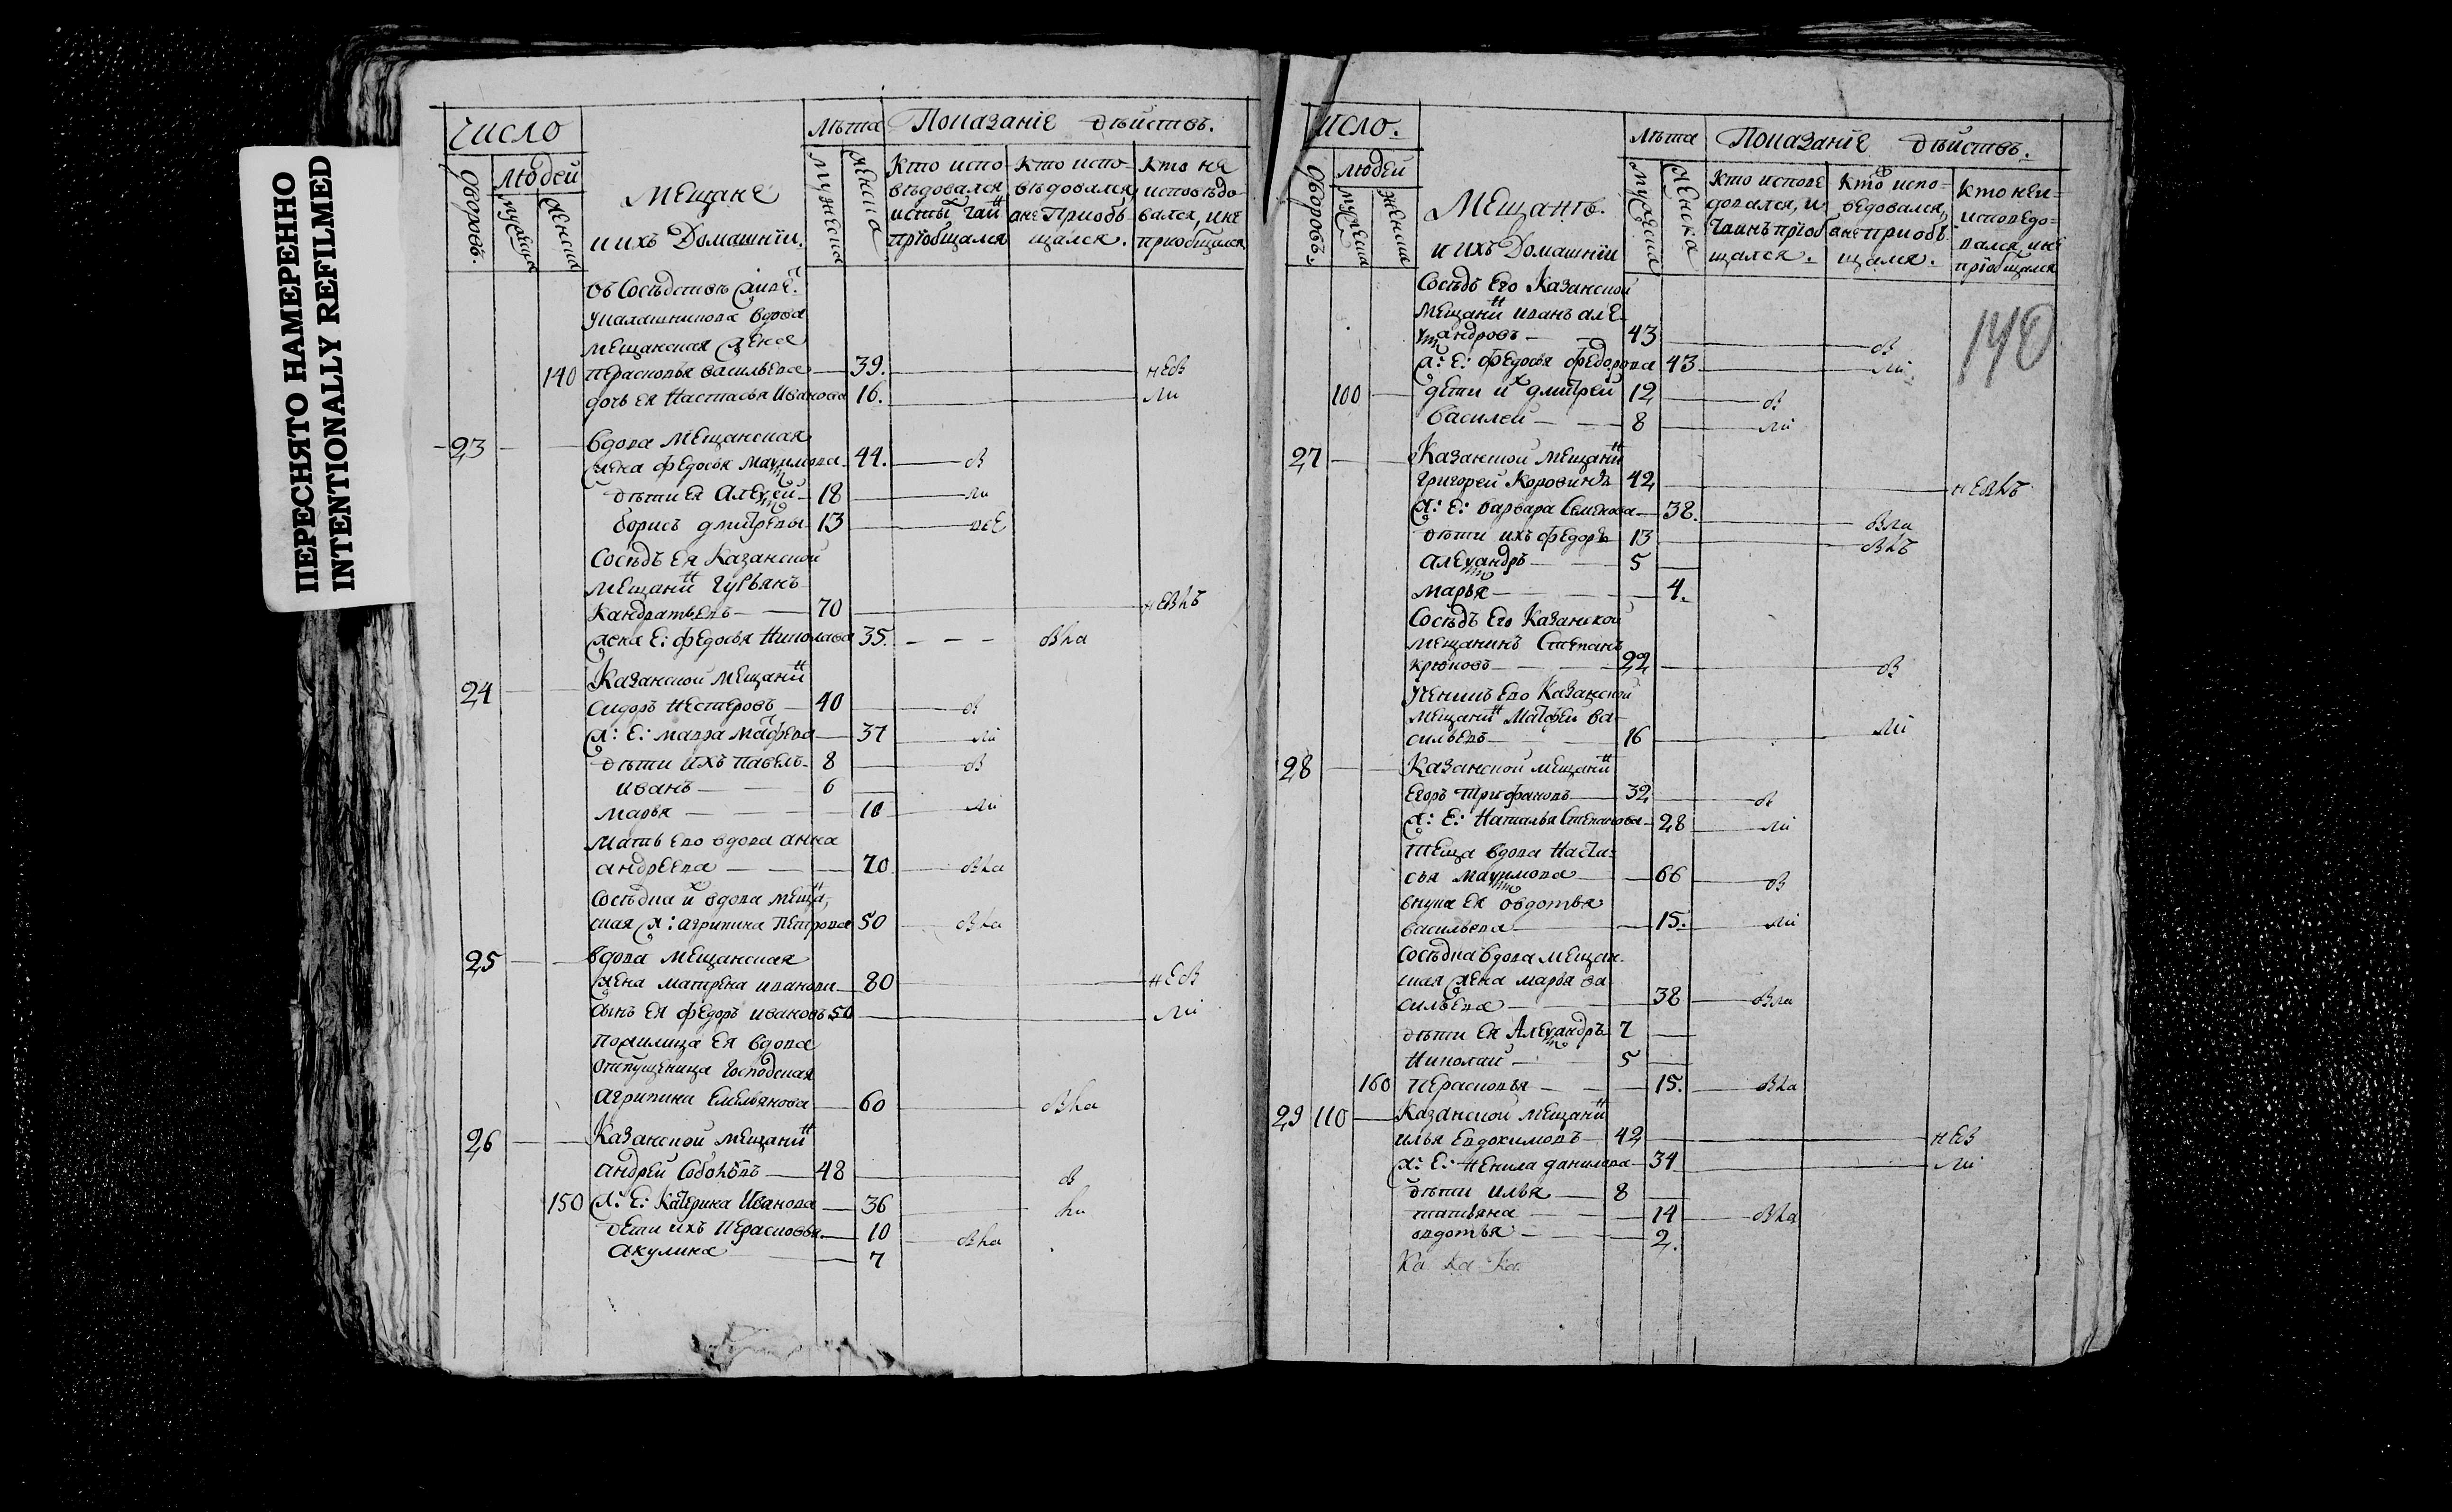 ПЕРЕСНЯТО НАМЕРЕННО
INTENTIONALLY REFILMED
Число
Лѣта Показанїе дѣиствъ.
Дворовъ. Людей мужска женска
Мещане
и ихъ Домашнїи.
мужеска женска
Кто испо-
вѣдовался
исты тай
прїобщался
Кто испо-
вѣдовался,
а не Приобъ
щался.
Кто не
исповѣдо-
вался, и не
приобщался
въ Сосѣдствѣ
вдова
мещанская жена
140 перасковья васильева 39. нев
дочь ея Настасья Иванова 16. ли
23 вдова Мещанская
жена Федосья Маѯимова 44. в
дѣти ея Алеѯей 18 ли
борисъ дмитревы 13 всЕ
Сосѣдъ ея Казанской
мещанин Гурьянъ
Кандратьевъ 70 невкъ
жена Е: Федосья Николаева 35. вка
24 Казанской Мещанин
Сидоръ Нестеровъ 40 в
ж: Е: мавра Матфева 37 ли
дѣти ихъ павелъ 8 в
иванъ 6
марья 10 ли
мать ево вдова анна
андреева 70 вка
сосѣдка их вдова мещан
ская ж: агрипина Петрова 50 вка
25 вдова мещанская
жена матрена иванова 80 нев
сынъ ея федоръ ивановъ 50 ли
пожилица ея вдова
отпущеница господская
агрипина Емельянова 60 вка
26 Казанской мещанин
андрей 48 в
150 ж: Е: Катерина Иванова 36 ки
дети ихъ Перасковья 10 вка
акулина 7
исло.
Лѣта Показанїе дѣиствъ.
Дворовъ. людей мужеска женска
Мещанъ.
и ихъ Домашнїи
мужеска женска
Кто испове
довался, и
таинъ прїоб
щался.
Кто испо-
ведовался,
а не приобъ
щался.
Кто неи-
споведо-
вался, и не
прїобщался
140
Сосѣдъ Его Казанской
мещанин иванъ але
ѯандровъ 43 в
ж: Е: федосья федорова 43 ли
100 дети их дмитрей 12 в
василей 8 ли
27 Казанской мещанин
Григорей Коровинъ 42 невкъ
ж: Е: варвара Семенова 38. вла
дѣти ихъ федоръ 13 вкъ
алеѯандръ 5
марья 4.
Сосѣдъ Его Казанской
мещанинъ Степанъ
крюковъ 22 в
ученикъ ево Казанской
мещанин Матфей ва-
сильевъ 16 ли
28 Казанской мещанин
Егоръ Трифановъ 32 в
ж: Е: Наталья Степанова 28 ли
теща вдова Наста-
сья маѯимова 66 в
внука ея овдотья
васильева 15. ли
сосѣдка вдова мещан
ская жена марья ва
сильева 38 вла
дѣти ея Алеѯандръ 7
Николай 5
160 перасковья 15. вка
29 110 Казанской мещанин
илья Евдокимовъ 42 нев
ж: Е: Ненила данилова 34 ли
дѣти илья 8
татьяна 14 вка
овдотья 2.
Ка ка Ка